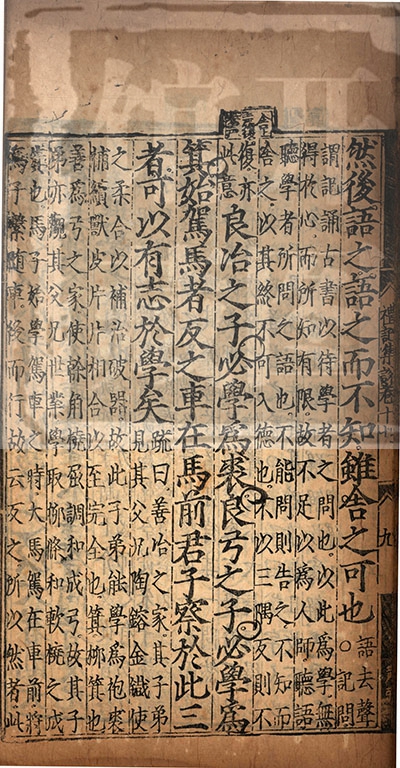 禮記集說卷十
九
然後語之語之而不知雖舍之可也語去聲○記問
謂記誦古書以待學者之問也以此爲學無
得於心而所知有限故不足以爲人師聽語
聽學者所問之語也不能問則告之不知而
舍之以其終不可入德也不以三隅反則不
復亦
此意良冶之子必學爲裘良弓之子必學爲
箕始駕馬者反之車在馬前君子察於此三
者可以有志於學矣疏曰善冶之家其子弟
見其父兄陶鎔金鐵使
之柔合以補治破器故此子弟能學爲袍裘
補續獸皮片片相合以至完全也箕柳箕也
善爲弓之家使幹角撓屈調和成弓故其子
弟亦觀其父兄世業學取柳條和軟撓之成
箕也馬子始學駕車之時大馬駕在車前將
馬子繫隨車後而行故云反之所以然者此